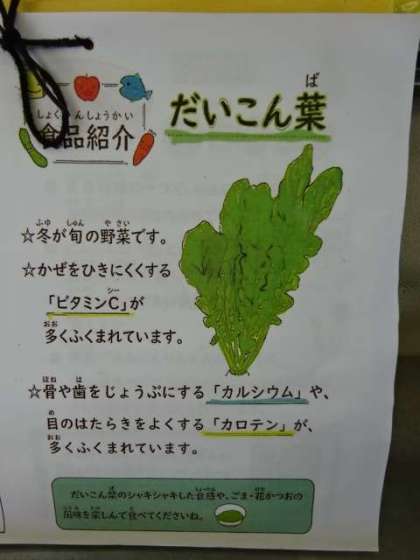 しょくひんしょうかい
食品紹介
だいこん葉
ば
☆冬が旬の野菜です。
ふゆ しゅん やさい
☆かぜをひきにくくする
「ビタミンC」が
シー
多くふくまれています。
おお
☆骨や歯をじょうぶにする「カルシウム」や、
ほね は
目のはたらきをよくする「カロテン」が、
め
多くふくまれています。
おお
だいこん葉のシャキシャキした食感や、ごま・花かつおの
風味を楽しんで食べてくださいね。